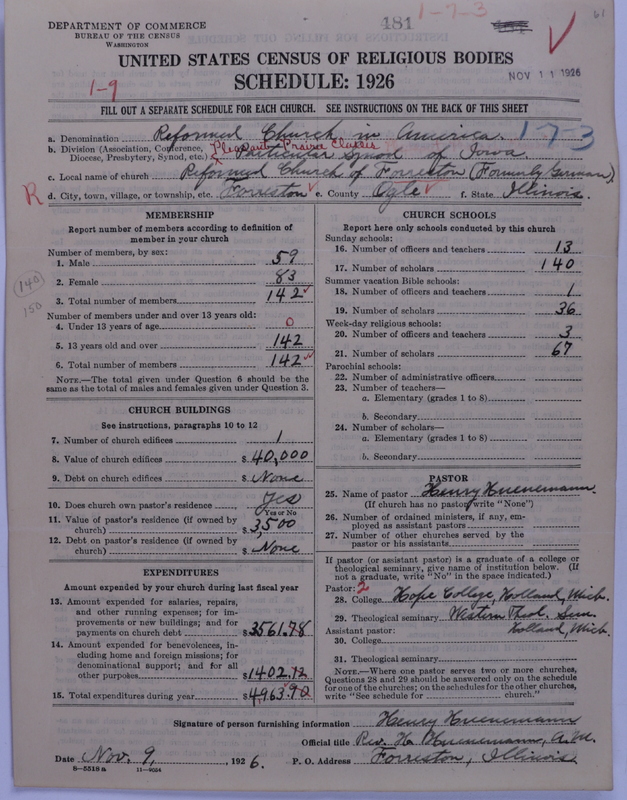 DEPARTMENT OF COMMERCE
BUREAU OF THE CENSUS
WASHINGTON
481
1-7-3
61
UNITED STATES CENSUS OF RELIGIOUS BODIES
SCHEDULE: 1926
NOV 11 1926
1-9
FILL OUT A SEPARATE SCHEDULE FOR EACH CHURCH. SEE INSTRUCTIONS ON THE BACK OF THIS SHEET
a. Denomination Reformed Church in America. 1-7-3
b. Division (Association, Conference, Pleasant Prairie Classis
Diocese, Presbytery, Synod, etc.) Particular Synod of Iowa
c. Local name of church Reformed Church of Forreston (Formerly German)
R d. City, town, village, or township, etc. Forreston e. County Ogle f. State Illinois.
MEMBERSHIP
Report number of members according to definition of
member in your church
Number of members, by sex:
1. Male 59
2. Female 83
3. Total number of members 142
140
150
Number of members under and over 13 years old:
4. Under 13 years of age 0
5. 13 years old and over 142
6. Total number of members 142
NOTE.—The total given under Question 6 should be
same as the total of males and females given under Question 3.
CHURCH BUILDINGS
See instructions, paragraphs 10 to 12
7. Number of church edifices 1
8. Value of church edifices $ 40,000
9. Debt on church edifices $ None
10. Does church own pastor's residence Yes
Yes or No
11. Value of pastor's residence (if owned by
church) $ 3,500
12. Debt on pastor's residence (if owned by
church) $ None
EXPENDITURES
Amount expended by your church during last fiscal year
13. Amount expended for salaries, repairs,
and other running expenses; for im-
provements or new buildings; and for
payments on church debt $ 3561.78
14. Amount expended for benevolences, in-
cluding home and foreign missions; for
denominational support; and for all
other purposes $ 1402.12
15. Total expenditures during year $ 4963.90
CHURCH SCHOOLS
Report here only schools conducted by this church
Sunday schools:
16. Number of officers and teachers 13
17. Number of scholars 140
Summer vacation Bible schools:
18. Number of officers and teachers 1
19. Number of scholars 36
Week-day religious schools:
20. Number of officers and teachers 3
21. Number of scholars 67
Parochial schools:
22. Number of administrative officers
23. Number of teachers—
a. Elementary (grades 1 to 8)
b. Secondary
24. Number of scholars—
a. Elementary (grades 1 to 8)
b. Secondary
PASTOR
25. Name of pastor Henry Huenemann.
(If church has no pastor, write "None")
26. Number of ordained ministers, if any, em-
ployed as assistant pastors
27. Number of other churches served by the
pastor or his assistants
If pastor (or assistant pastor) is a graduate of a college or
theological seminary, give name of institution below. (If
not a graduate, write "No" in the space indicated.)
Pastor: 2
28. College Hope College, Holland, Mich.
29. Theological seminary Western Theol. Sem.
Assistant pastor: Holland, Mich.
30. College
31. Theological seminary
NOTE.—Where one pastor serves two or more churches,
Questions 28 and 29 should be answered only on the schedule
for one of the churches; on the schedules for the other churches,
write "See schedule for church."
Signature of person furnishing information Henry Huenemann
Official title Rev. H. Huenemann, A.M.
Date Nov. 9, 1926. P. O. Address Forreston, Illinois
8-5518 a 11-9034